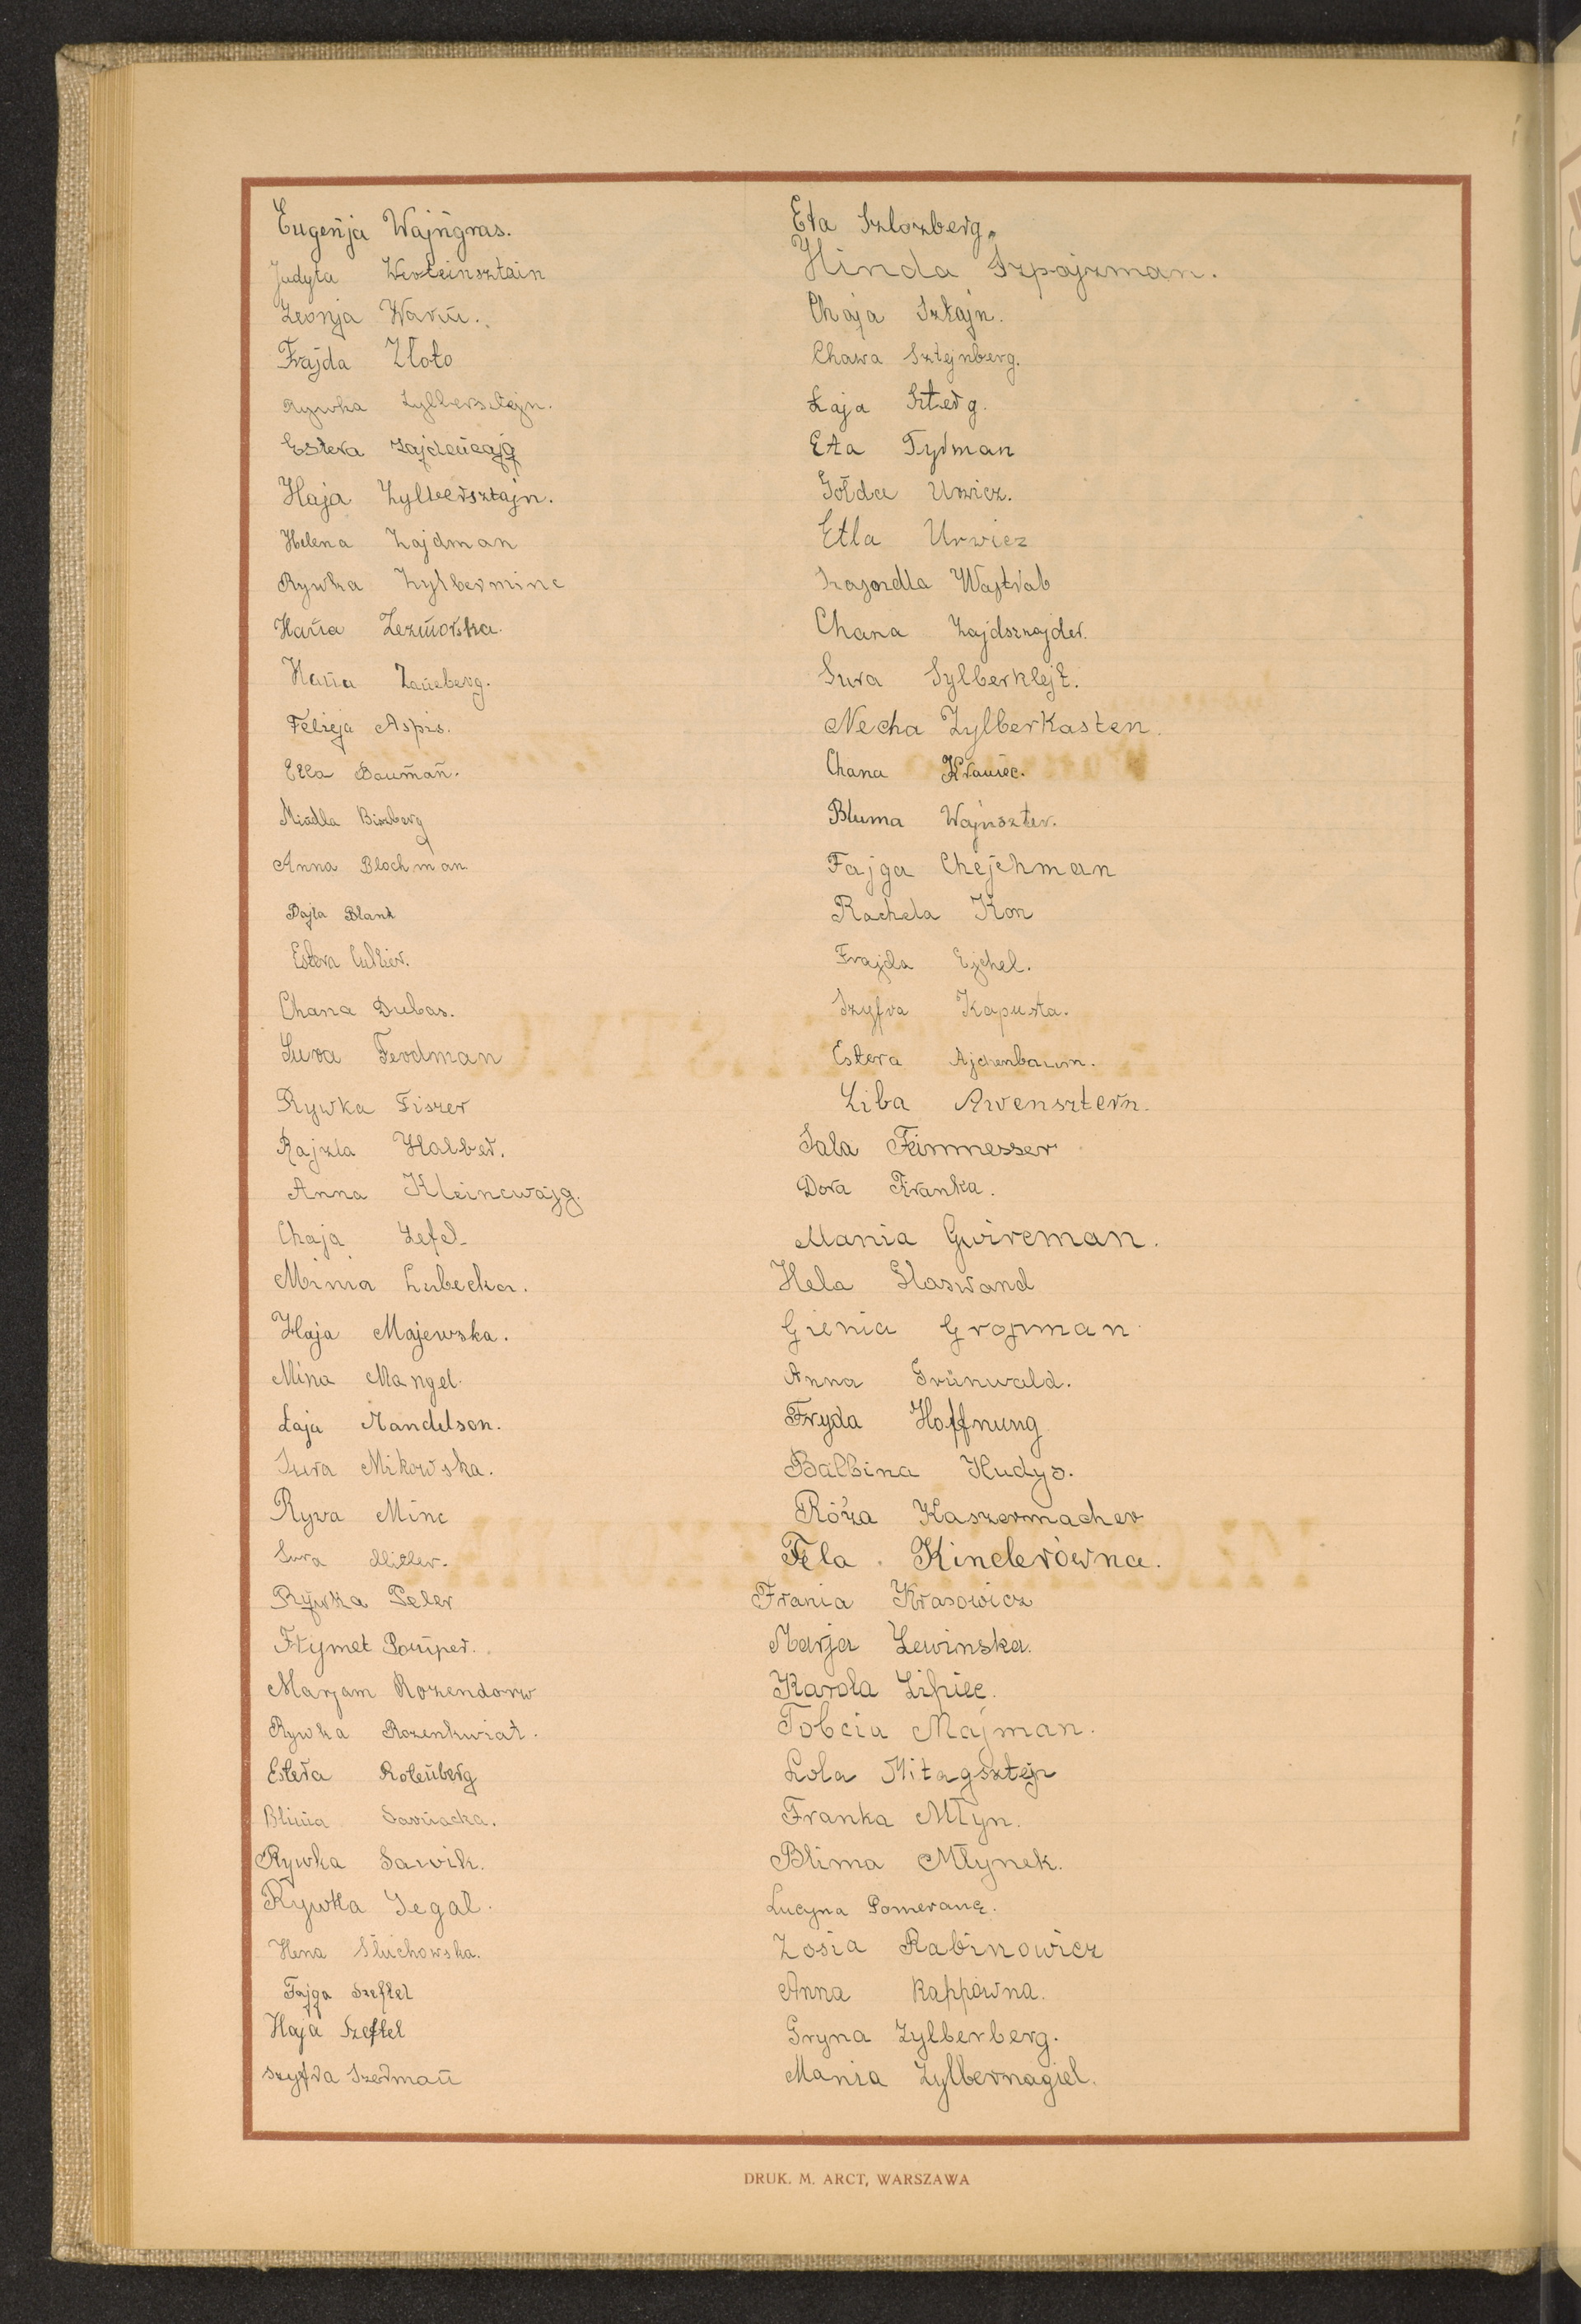 Eugenja Wajngras.
Judyta
Leonja Warm.
Frajda Złoto
Rywka Zylbersztejn.
Estera
Haja Zylbersztajn.
Helena Zajdman
Rywka Zylberminc
Hana
Hana Zaneberg.
Felicja Aspis.
Etla Bauman.
Mindla Birnberg
Anna Blochman.
Dajla Blank
Estera Cukier.
Chana Dubas.
Sura Ferdman
Rywka Fiszer
Rajzla Halber.
Anna Kleincwajg.
Chaja Lefel
Minia Lubecka.
Haja Majewska.
Mina Mangel.
Łaja Mandelson.
Sura Mikowska.
Rywa Minc
Sura Miller.
Rywka Peler
Frymet Pomper.
Marjam Rozendorw
Rywka Rozenkwiat.
Estera Rotenberg
Blima Sarnacka.
Rywka Sawik.
Rywka Segal.
Hena Słuchowska.
Fajga Szeftel
Haja Szeftel
Szyfra Szerman
Eta Szlozberg.
Hinda Szpajzman.
Chaja Sztajn.
Chawa Sztejnberg.
Łaja Szterg.
Eta Tydman
Gołda Urwicz.
Etla Urwicz
Wajtrab
Chana Zajdsznajder.
Sura Sylberklejt.
Necha Zylberkasten.
Chana Krawiec.
Bluma Wajnszter.
Fajga Chejchman
Rachela Kon
Frajda Ejchel.
Szyfra Kapusta.
Estera Ajchenbaum.
Liba Arensztern.
Sala Feinmesser
Dora Franka.
Mania Gwireman.
Hela Glaswand
Gienia Grojsman
Anna Grünwald.
Fryda Hoffnung
Balbina Hudys.
Róża Kaszermacher
Fela Kinderówna.
Frania Krasowicz
Marja Lewinska.
Karola Lipiec.
Tobcia Majman.
Lola Mitagsztejn
Franka Młyn.
Blima Młynek.
Lucyna Pomeranc.
Zosia Rabinowicz
Anna Rappówna.
Gryna Zylberberg.
Mania Zylbernagiel.
DRUK. M. ARCT, WARSZAWA